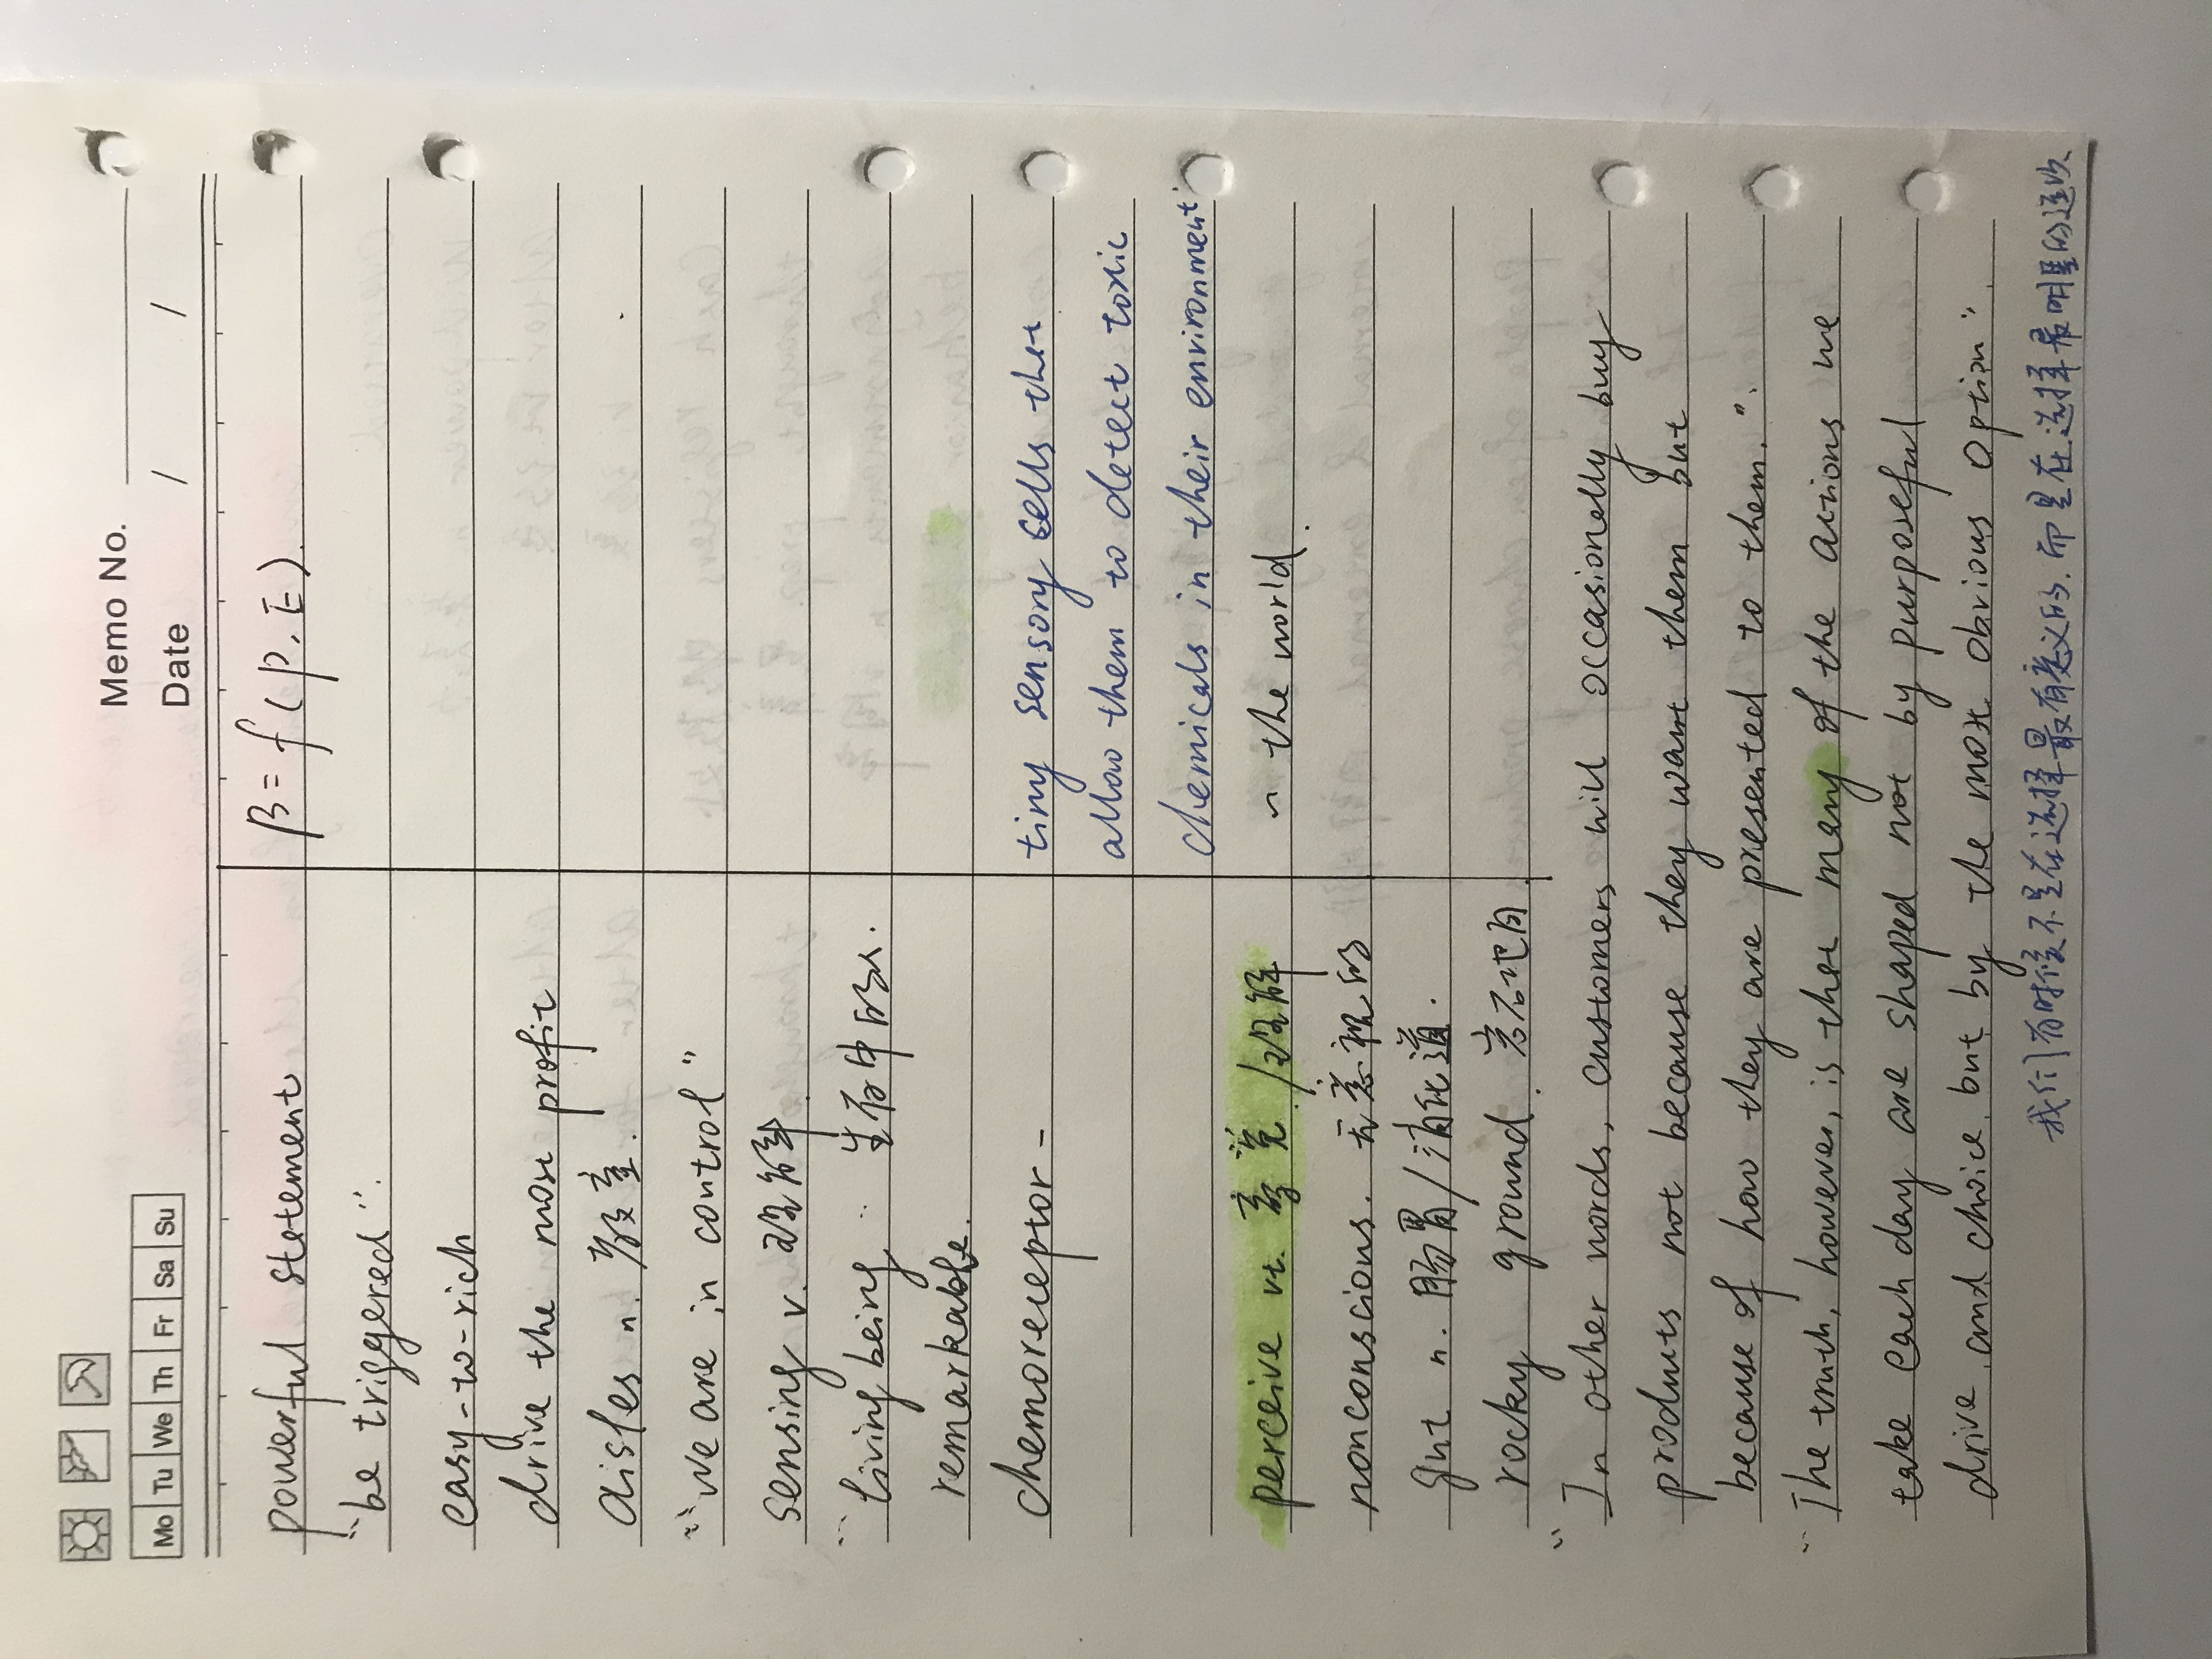 Memo No.
Mo Tu We Th Fr Sa Su
Date / /
powerful statement
β = f (P, E).
"be triggered".
easy-to-rich
drive the most profit
aisles n.
"we are in control"
sensing v. 理解
"living being 生存中的人.
remarkable.
chemoreceptor -
tiny sensory cells that
allow them to detect toxic
chemicals in their environment
perceive vt. 察觉/理解
~ the world.
nonconscious. 无意识的
gut n. 肠胃/消化道.
rocky ground. 岩石地面
"In other words, customers will occasionally buy
products not because they want them but
because of how they are presented to them.".
"The truth, however, is that many of the actions we
take each day are shaped not by purposeful
drive and choice but by the most obvious option".
我们有时候不是在选择最有意义的,而是在选择最明显的选项